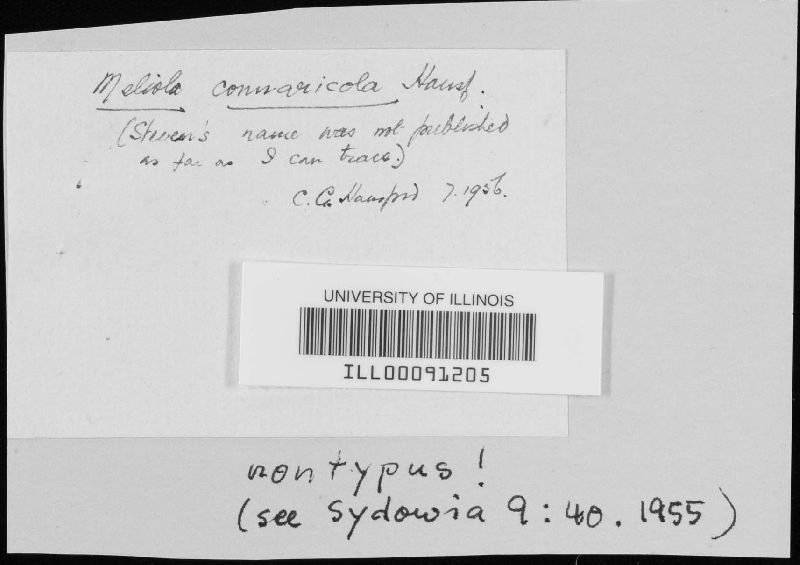 Meliola connaricola Hansf.
(Steven's name was not published
as far as I can trace.)
C. G. Hansford 7.1956.
UNIVERSITY OF ILLINOIS
ILL00091205
non typus!
(see Sydowia 9:40. 1955)